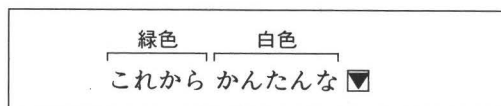 緑色 白色
これから かんたんな▼